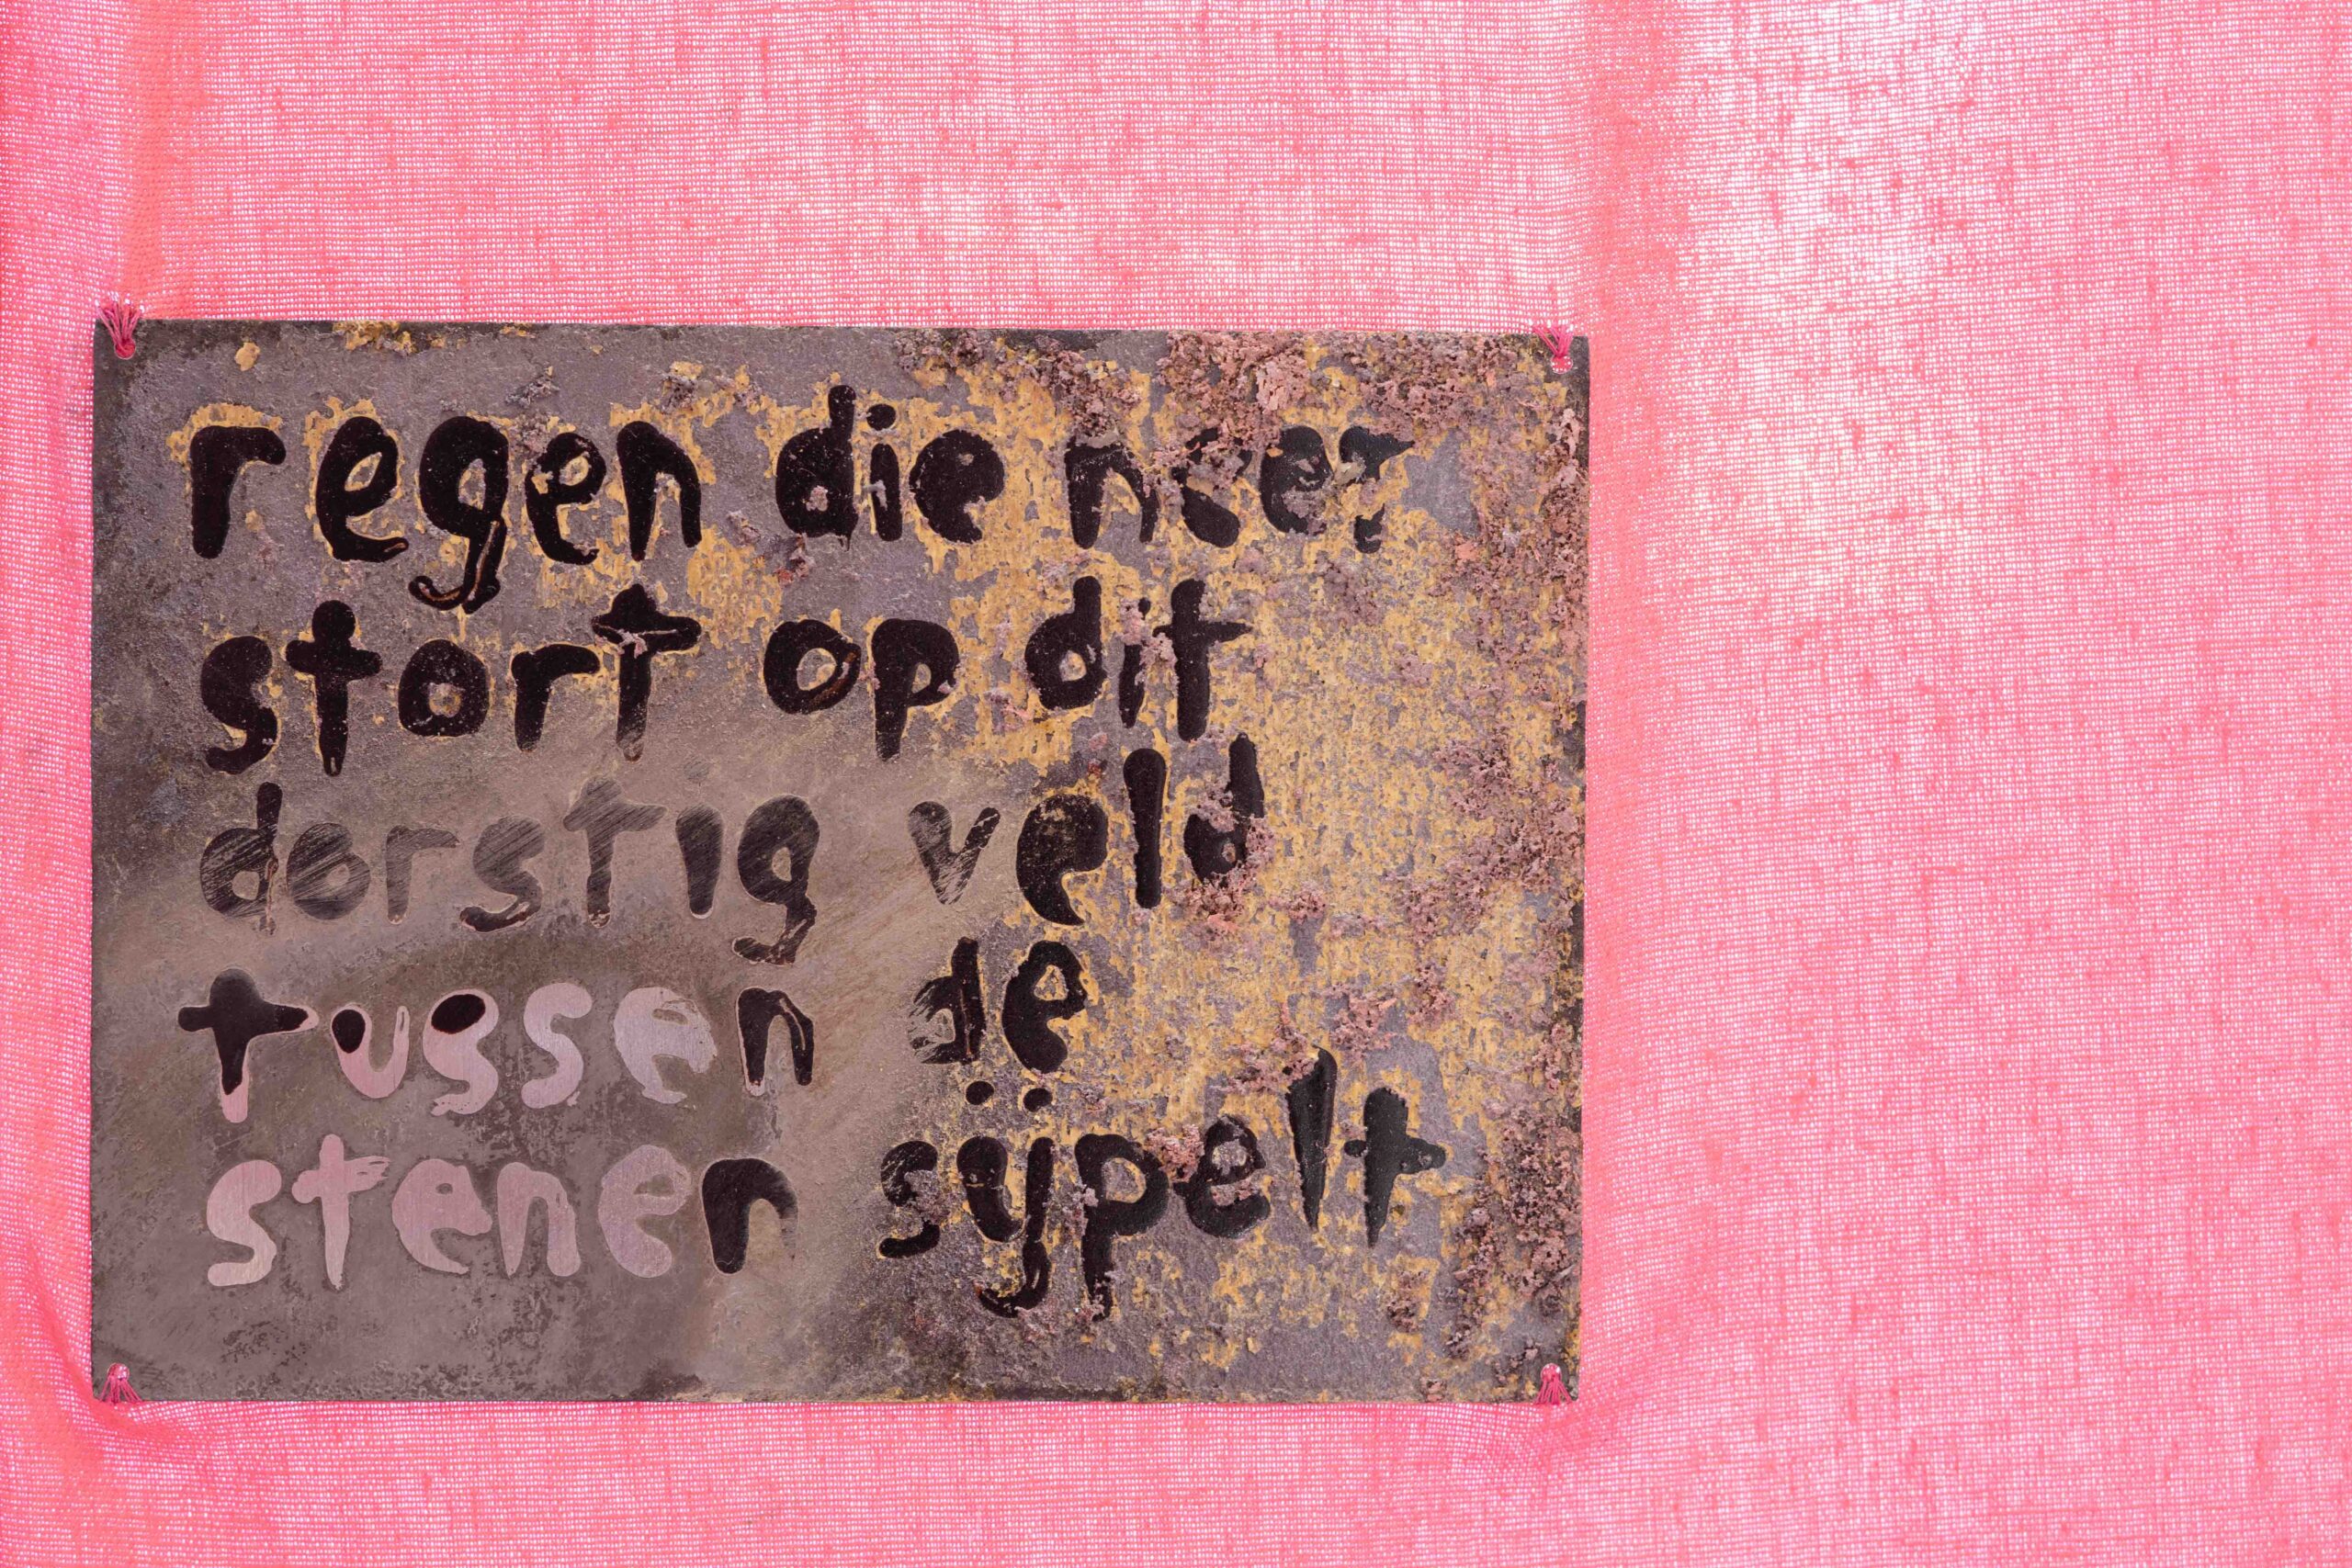 regen die neer
stort op dit
dorstig veld
tussen de
stenen sijpelt